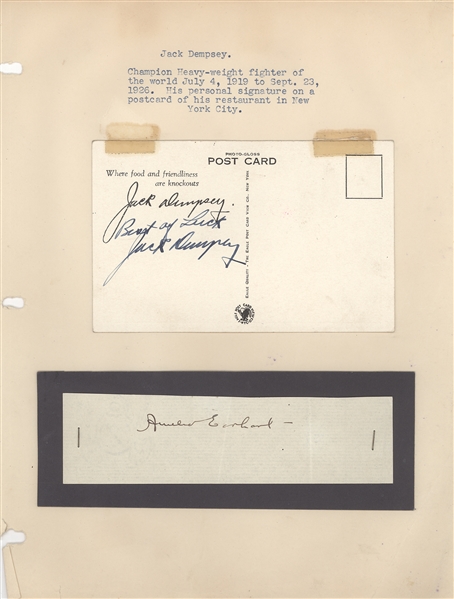 Jack Dempsey.
Champion Heavy-weight fighter of
the world July 4, 1919 to Sept. 23,
1926. His personal signature on a
postcard of his restaurant in New
York City.
PHOTO-GLOSS
POST CARD
Where food and friendliness
are knockouts
Jack Dempsey.
Best of Luck
Jack Dempsey
EAGLE QUALITY - THE EAGLE POST CARD VIEW CO., NEW YORK
Amelia Earhart -